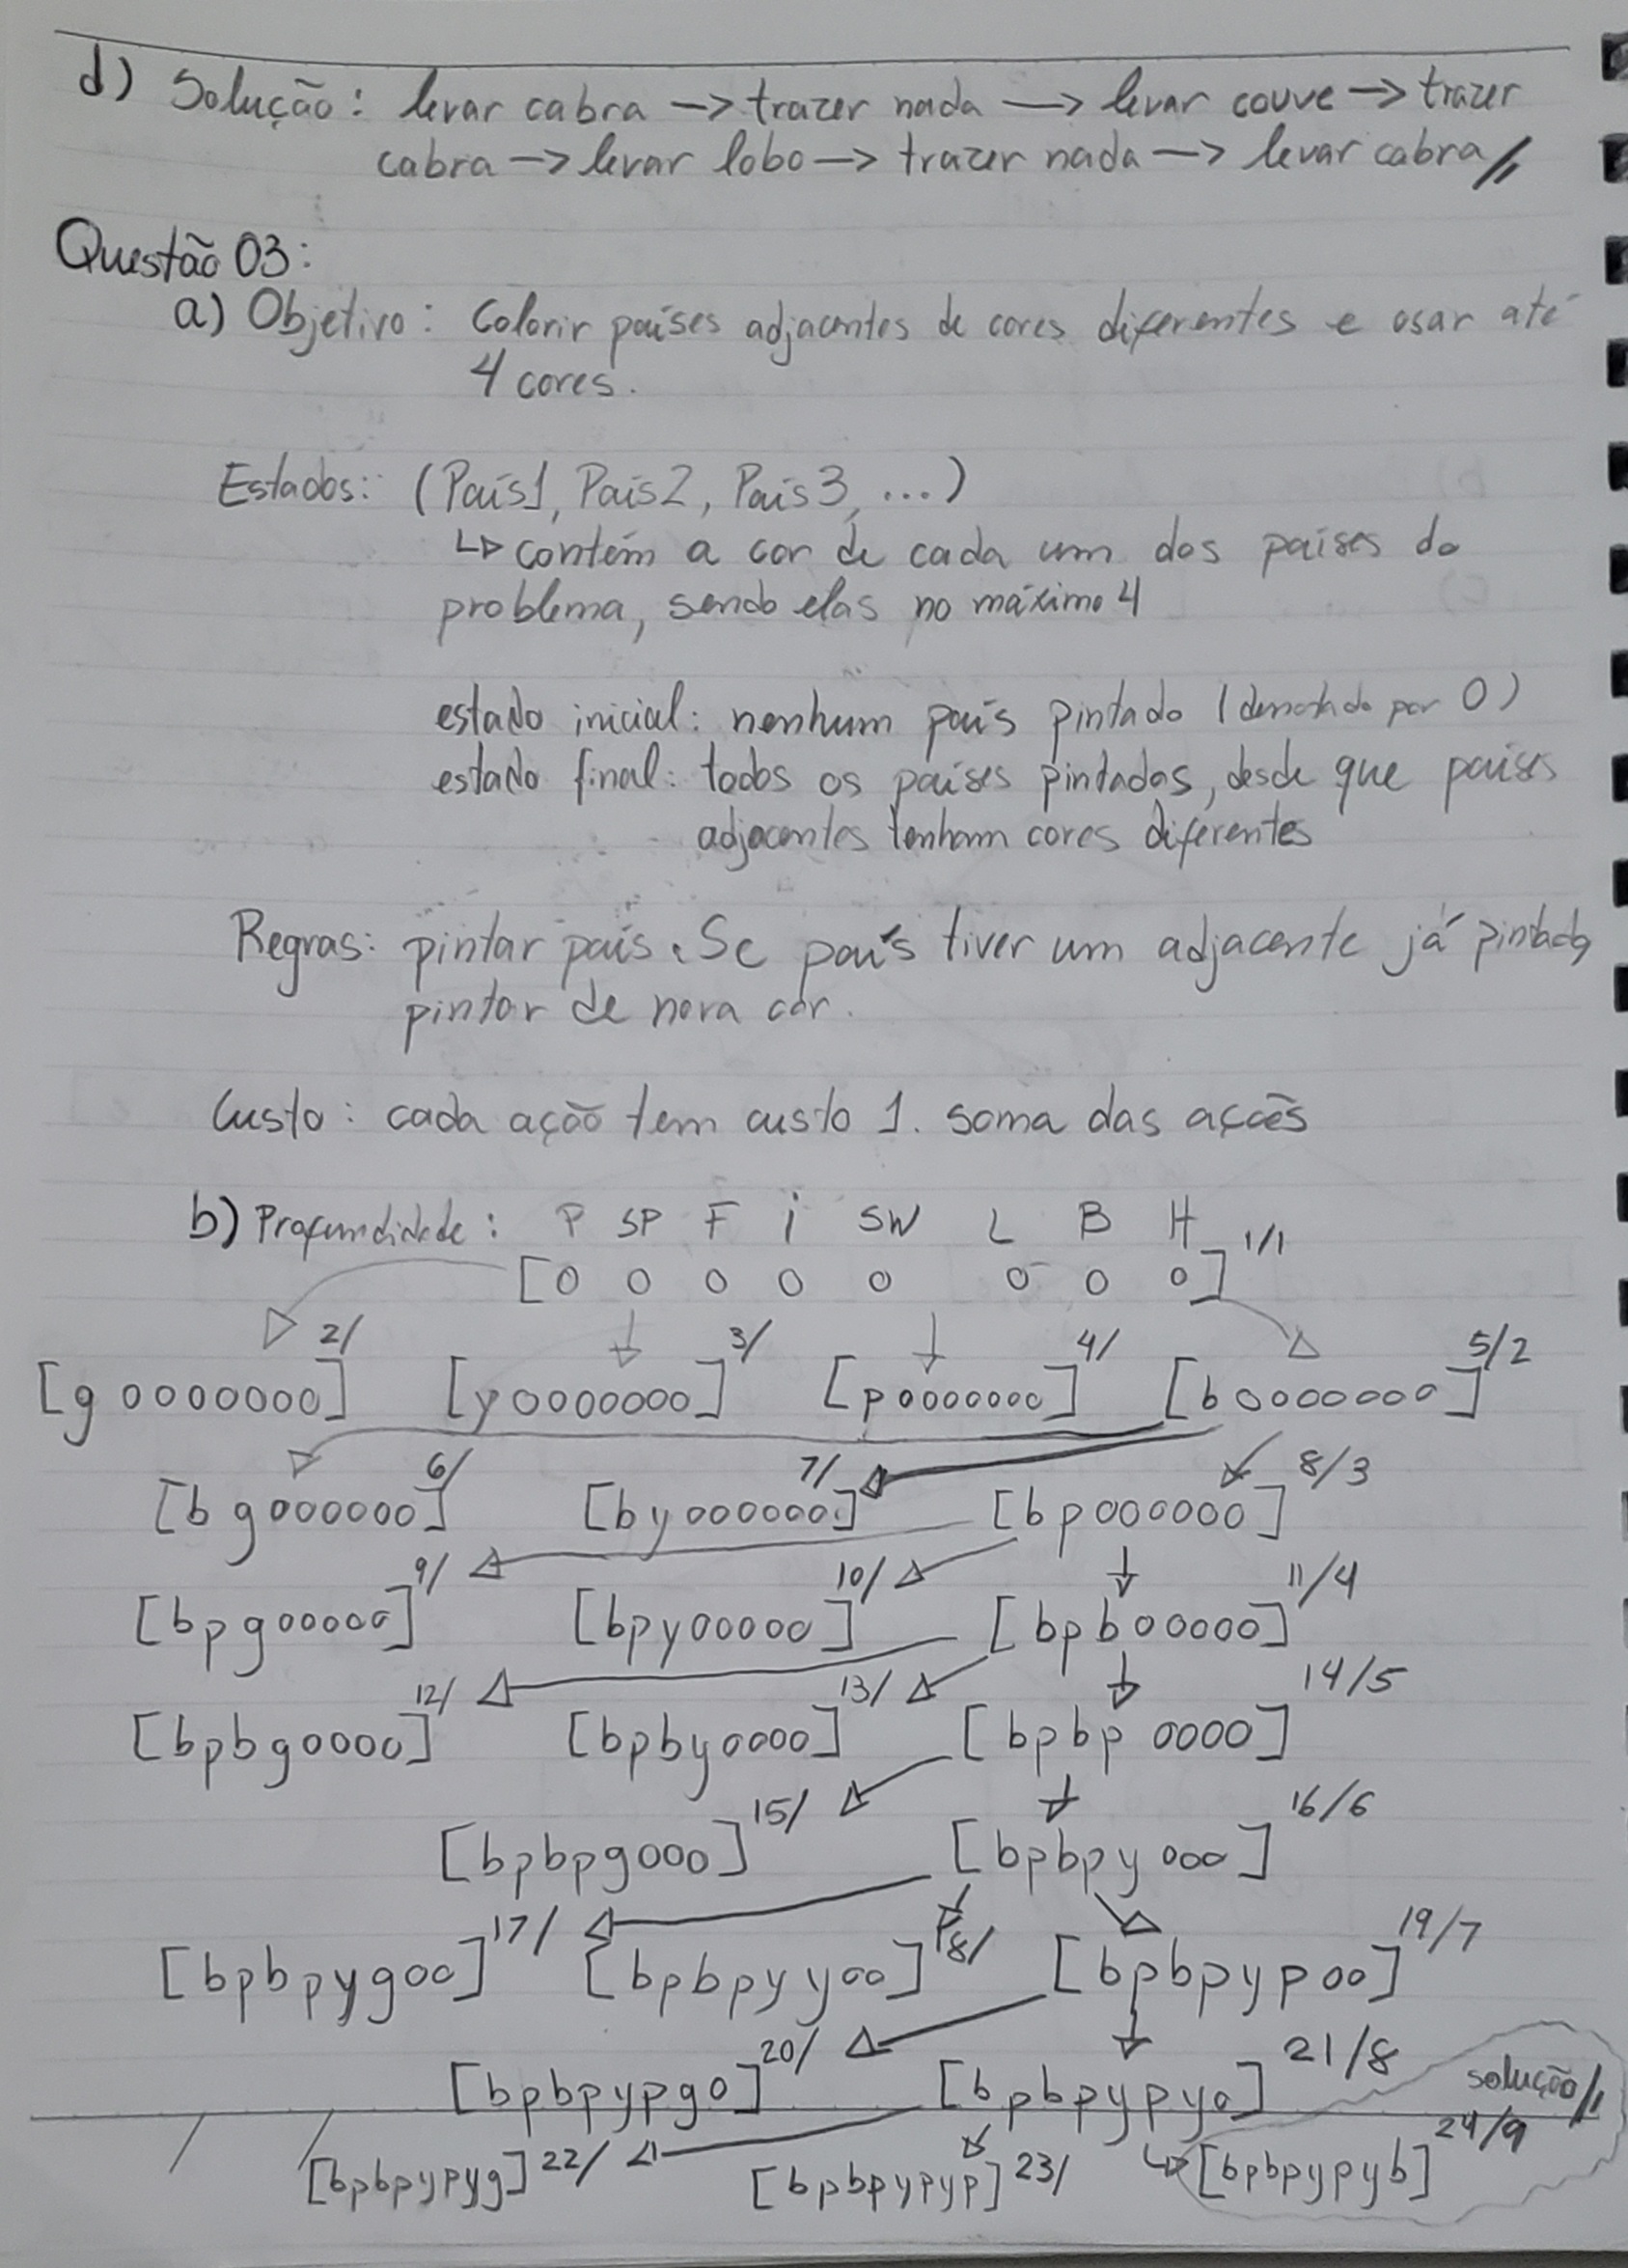 d) Solução: levar cabra → trazer nada → levar couve → trazer
cabra → levar lobo → trazer nada → levar cabra//
Questão 03:
a) Objetivo: Colorir países adjacentes de cores diferentes e usar até
4 cores.
Estados: (País1, País2, País3, ...)
↳ contém a cor de cada um dos países do
problema, sendo elas no máximo 4
estado inicial: nenhum país pintado (denotado por 0)
estado final: todos os países pintados, desde que países
adjacentes tenham cores diferentes
Regras: pintar país. Se país tiver um adjacente já pintado,
pintar de nova cor.
Custo: cada ação tem custo 1. soma das ações
b) Profundidade: P SP F i SW L B H
[0 0 0 0 0 0 0 0] 1/1
[g 0000000] 2/ [y 0000000] 3/ [p 0000000] 4/ [b 0000000] 5/2
[bg000000] 6/ [by000000] 7/ [bp000000] 8/3
[bpg00000] 9/ [bpy00000] 10/ [bpb00000] 11/4
[bpbg0000] 12/ [bpby0000] 13/ [bpbp 0000] 14/5
[bpbpg000] 15/ [bpbpy000] 16/6
[bpbpyg00] 17/ [bpbpyy00] 18/ [bpbpyp00] 19/7
[bpbpypg0] 20/ [bpbpypy0] 21/8
solução//
[bpbpypyg] 22/ [bpbpypyp] 23/ ↳ [bpbpypyb] 24/9